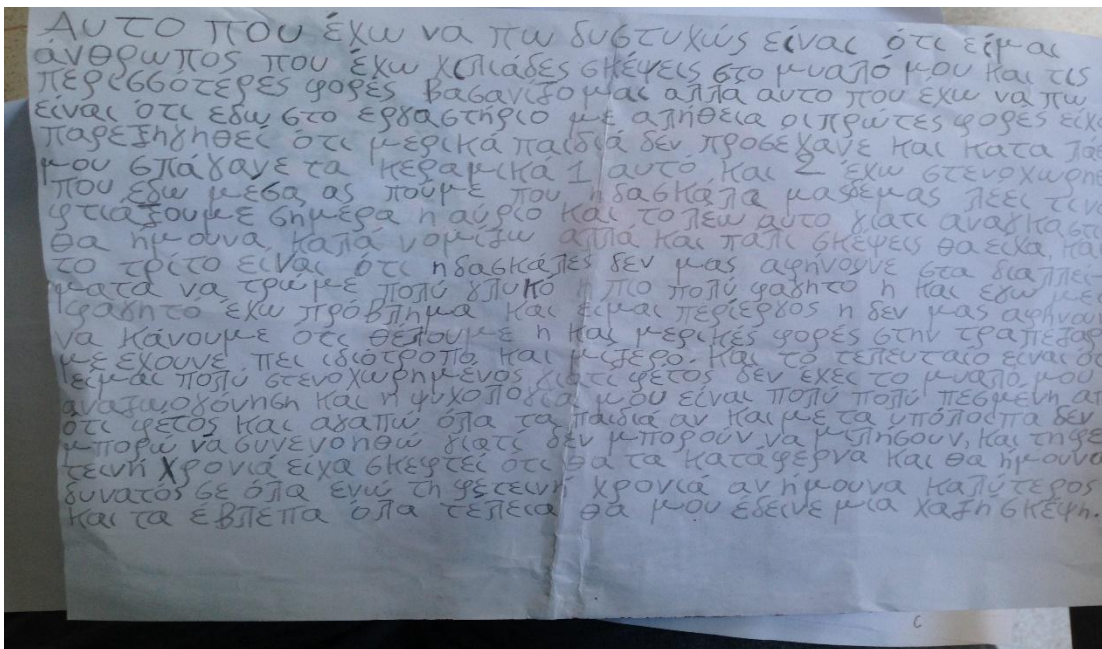 Αυτο που έχω να πω δυστυχώς είναι ότι είμαι
άνθρωπος που έχω χιλιάδες σκέψεις στο μυαλό μου και τις
περισσότερες φορες βασανίζομαι αλλα αυτο που έχω να πω
είναι ότι εδω στο εργαστήριο με αλήθεια οι πρώτες φορες είχα
παρεξηγηθεί ότι μερικά παιδιά δεν προσέχανε και κατα
μου σπάγανε τα κεραμικά 1 αυτό και 2 έχω στενοχωρηθ
που εδω μεσα ας πούμε που η δασκαλα μας δεμας λέει τι ν
φτιάξουμε σημερα η αύριο και το λεω αυτο γιατι αναγκαστ
θα ημουνα καλά νομίζω αλλά και παλι σκέψεις θα ειχα, και
το τρίτο ειναι ότι η δασκάλες δεν μας αφήνουνε στα διαλλεί
ματα να τρωμε πολύ γλυκό η πιο πολύ φαγητο η και εγω με
φαγητό έχω πρόβλημα και είμαι περίεργος η δεν μας αφηνουν
να κάνουμε ότι θέλουμε η και μερικές φορες στην τραπεζαρ
με έχουνε πει ιδιότροπο και μίζερο. και το τελευταίο είναι ότ
είμαι πολύ στενοχωρημένος γιατι φετος δεν έχει το μυαλό μου
αναζωογόνηση και η ψυχολογία μου είναι πολύ πολύ πεσμενη απ
ότι φετος και αγαπώ όλα τα παιδιά αν και με τα υπόλοιπα δεν
μπορώ να συνενοηθώ γιατι δεν μπορούν να μιλήσουν, και τη φε
τεινή χρονιά ειχα σκεφτεί ότι θα τα κατάφερνα και θα ήμουνα
δυνατός σε όλα ενώ τη φετεινή χρονιά αν ημουνα καλύτερος
και τα έβλεπα όλα τελεια θα μου έδεινε μια χαζη σκέψη.